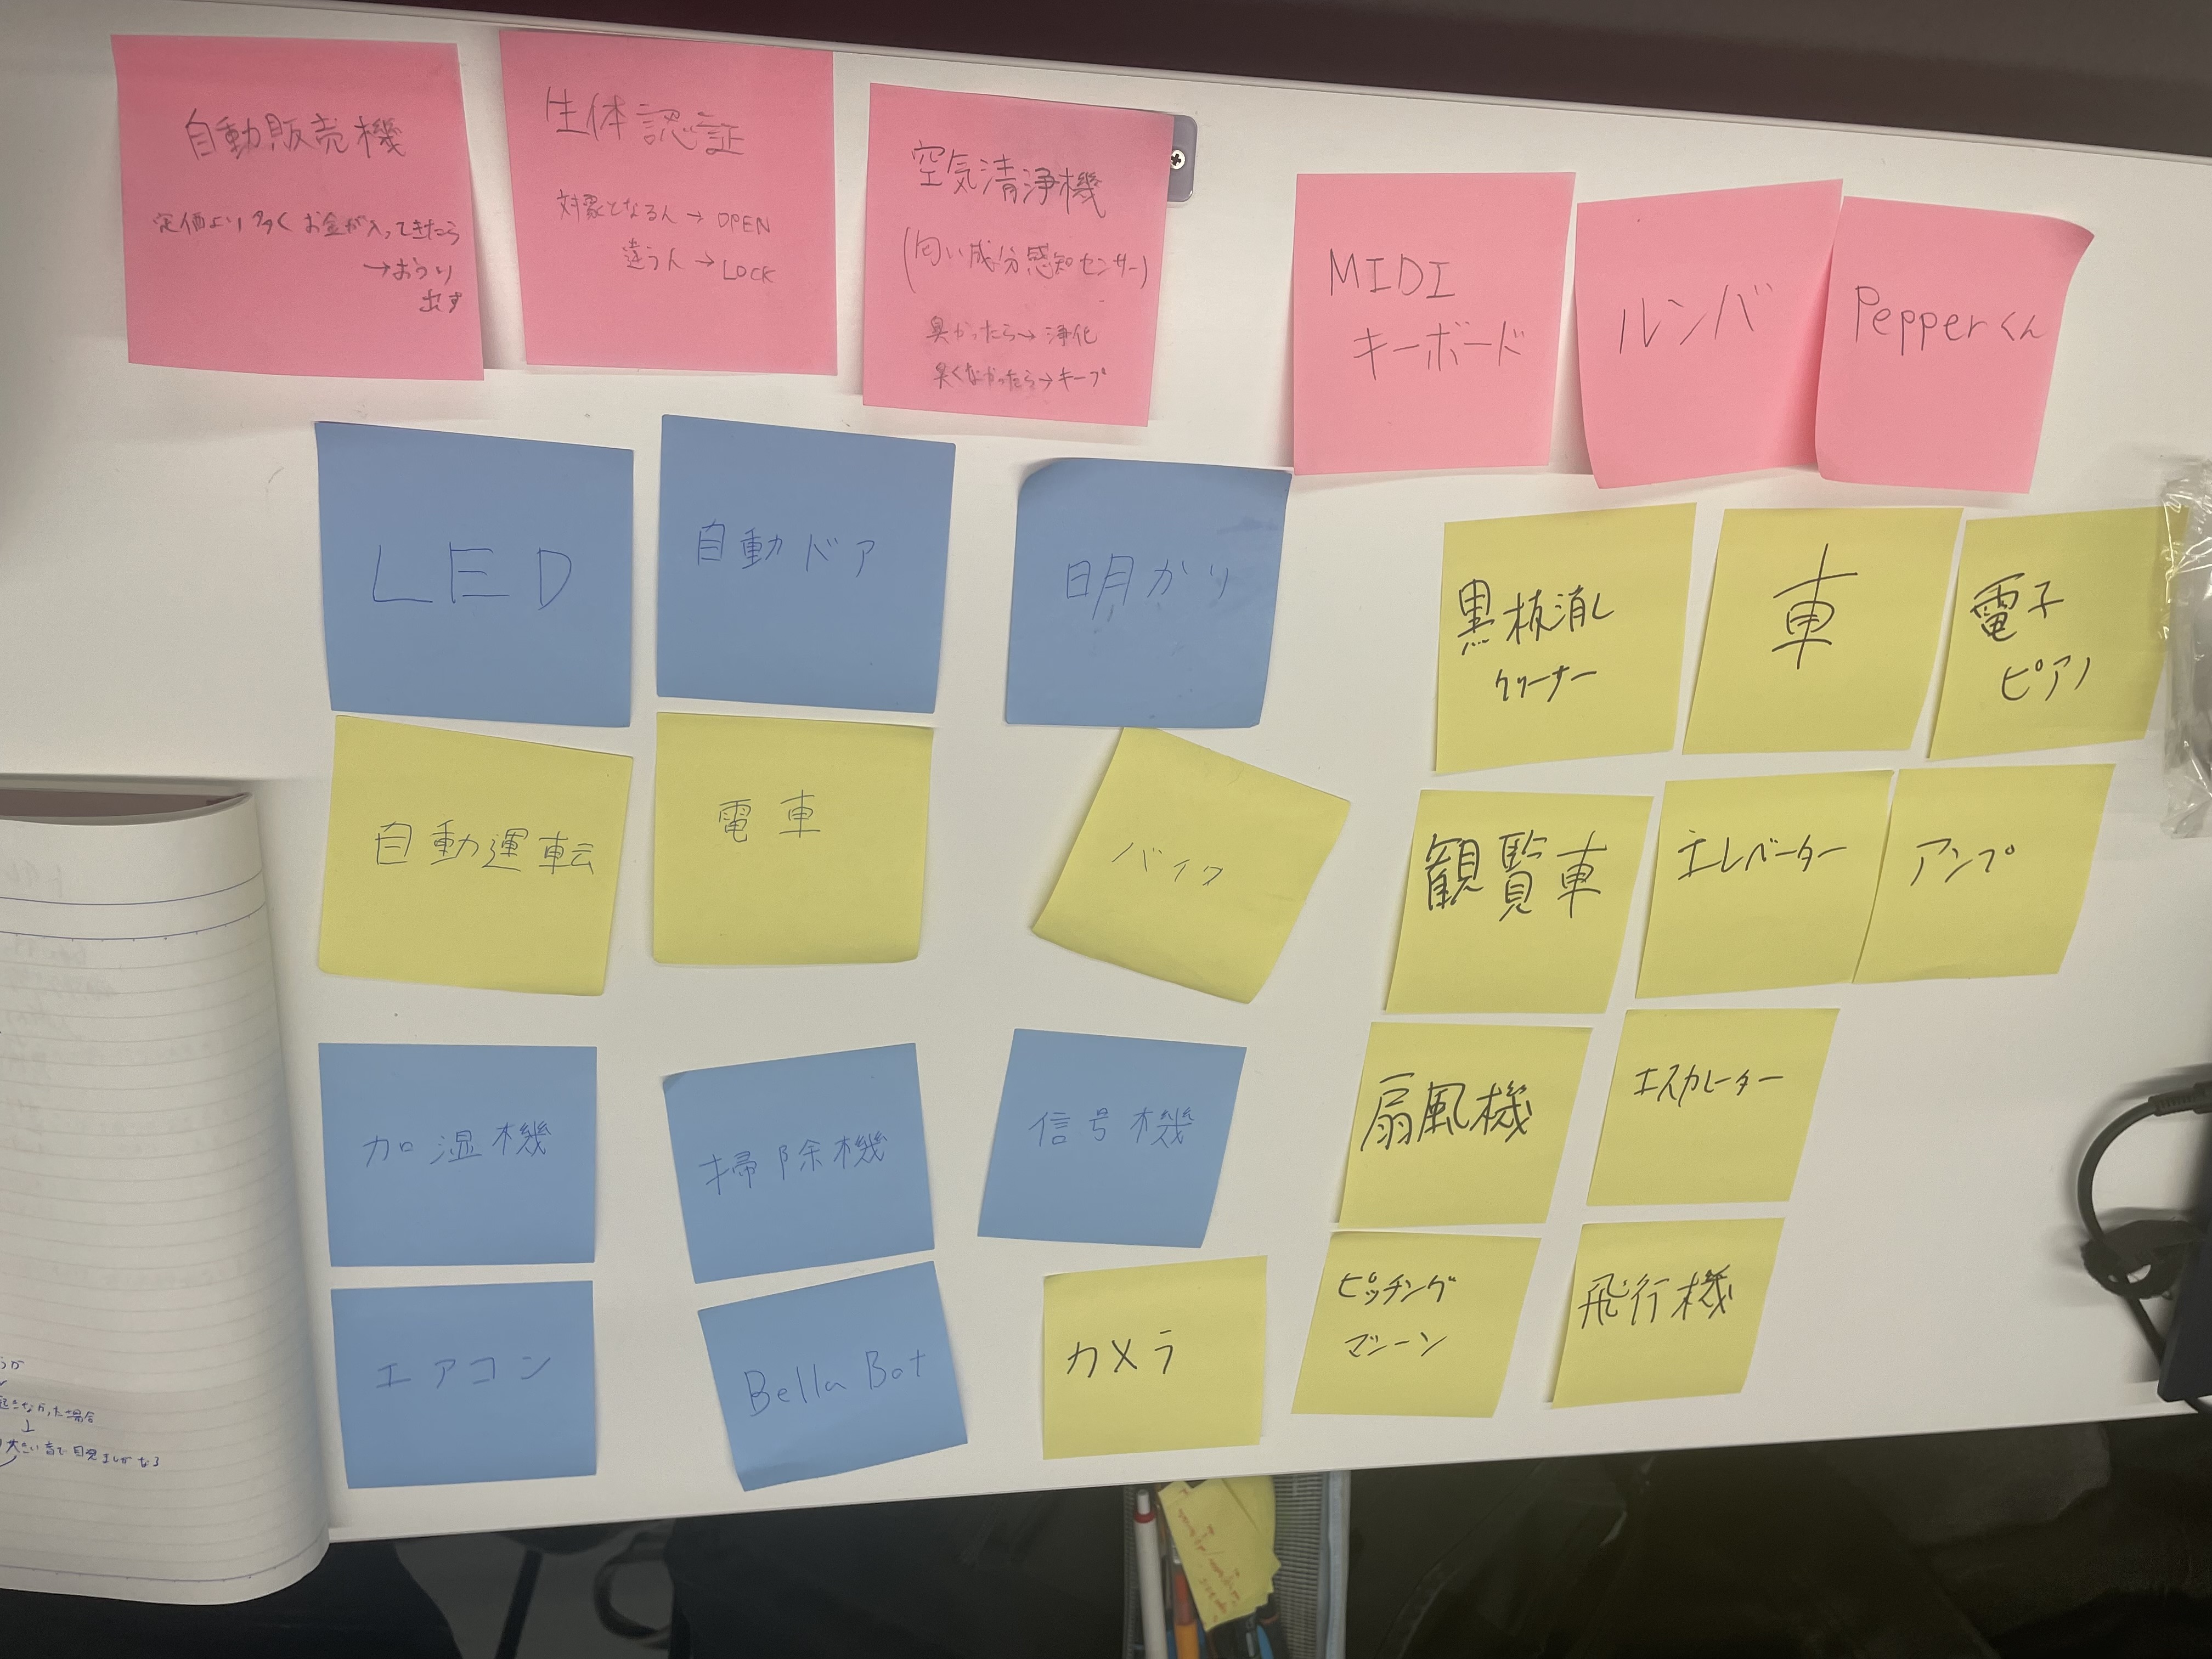 自動販売機
定価より多くお金が入ってきたら
→おつり
出す
生体認証
対象となる人→OPEN
違う人→LOCK
空気清浄機
(匂い成分感知センサー)
臭かったら→浄化
臭くなかったら→キープ
MIDI
キーボード
ルンバ
Pepperくん
LED
自動ドア
明かり
黒板消し
クリーナー
車
電子
ピアノ
自動運転
電車
バイク
観覧車
エレベーター
アンプ
加湿機
掃除機
信号機
扇風機
エスカレーター
エアコン
Bella Bot
カメラ
ピッチング
マシーン
飛行機
起きなかった場合
大きい音で目覚ましがなる